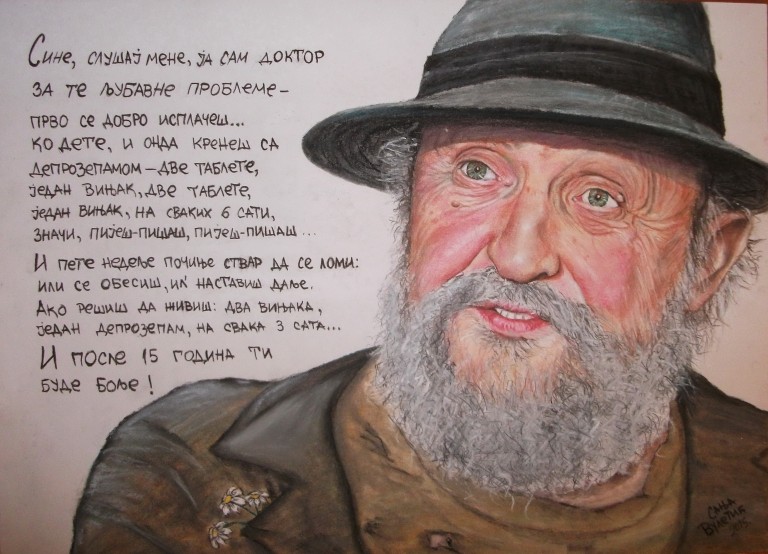 Сине, слушај мене, ја сам доктор
за те љубавне проблеме-
прво се добро исплачеш...
ко дете, и онда кренеш са
депрозепамом-две таблете,
један вињак, две таблете,
један вињак, на сваких 6 сати,
значи, пијеш-пишаш, пијеш-пишаш...
И пете недеље почиње ствар да се ломи:
или се обесиш, ил' наставиш даље.
Ако решиш да живиш: два вињака,
један депрозепам, на свака 3 сата...
И после 15 година ти
буде боље!
Сања